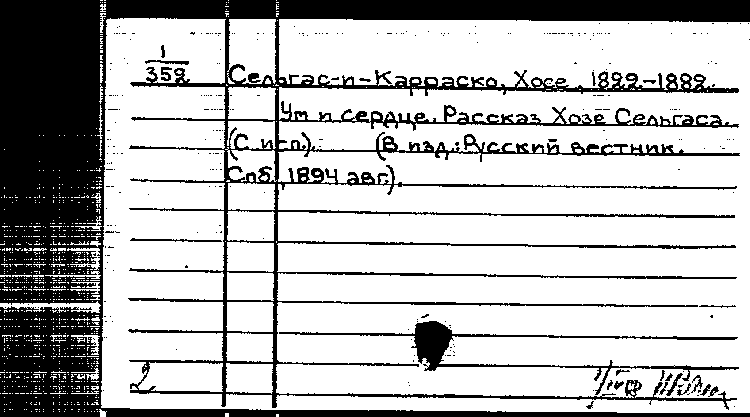 1
352
Сельгас-и-Карраско, Хосе, 1822-1882.
Ум и сердце. Рассказ Хозе Сельгаса.
(С исп.). (В изд.: Русский вестник.
Спб, 1894 авг.).
2